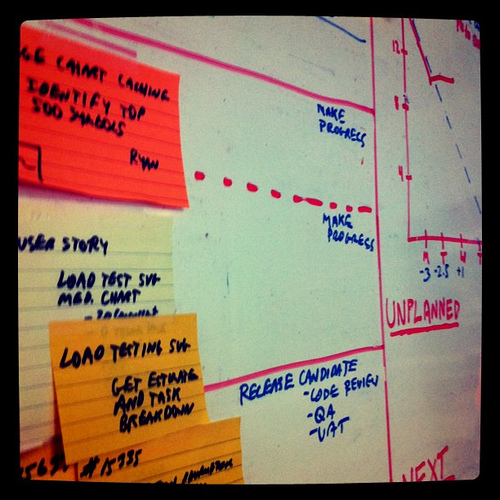 GE CHART CACHING
IDENTIFY TOP
500 SYMBOLS
RYAN
USER STORY
LOAD TEST SVG
MED. CHART
LOAD TESTING SVG
GET ESTIMATE
AND TASK
BREAKDOWN
#15735
MAKE
PROGRESS
MAKE
PROGRESS
RELEASE CANDIDATE
-CODE REVIEW
-QA
-UAT
12
8
4
M T W T
-3 -2.5 +1
UNPLANNED
NEXT